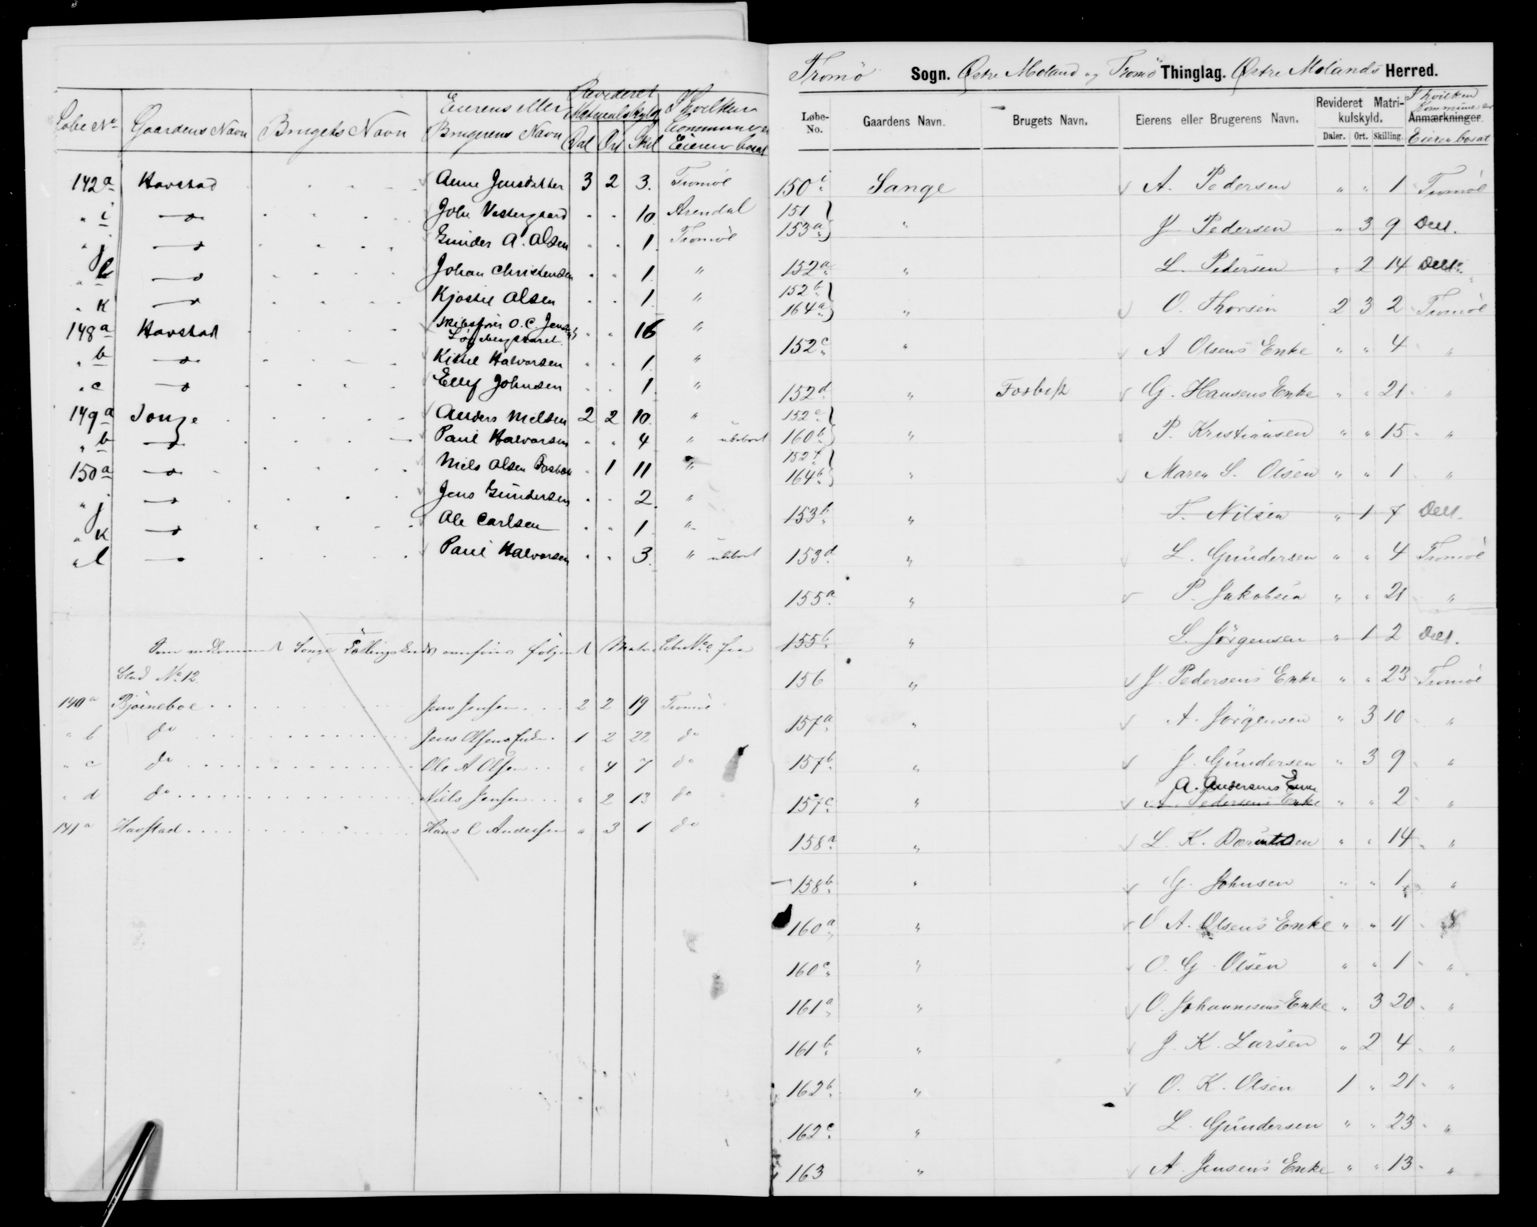 Løbe No. Gaardens Navn Brugets Navn Eierens eller Brugerens Navn Revideret Matrikulskyld Dal Ort Skil I hvilken Kommune er Eieren bosat
142a Havstad Anne Jensdatter 3 2 3. Tromöe
" i — Johs Vestergaard . . 10 Arendal
" j — Gunder A. Olsen . . 1 Tromöe
" l — Johan Christensen . . 1 "
" k — Kjøstel Olsen . . 1 "
148a Havstad Skibsfører O. C. . . 16 "
" b — Kittel Halvorsen . . 1 "
" c — Ellef Johnsen . . 1 "
149a Songe Anders Nielsen 2 2 10 "
" b — Paul Halvorsen . . 4 "
150a — Niels Olsen . 1 11 "
" j — Jens Gundersen . . 2 "
" k — Ole Carlsen . . 1 "
" l — Paul Halvorsen . . 3 "
Songe
Blad No. 12.
140a Bjørneboe Jens Jensen 2 2 19 Tromö
" b do Jens Olsens Enke 1 2 22 do
" c do Ole A Olsen " 4 7 do
" d do Niels Jensen " 2 13 do
141a Havstad Hans C Andersen " 3 1 do
Tromö Sogn. Østre Moland og Tromö Thinglag. Østre Molands Herred.
Løbe-No. Gaardens Navn. Brugets Navn. Eierens eller Brugerens Navn. Revideret Matrikulskyld. Daler. Ort. Skilling. I hvilken Kommune er Anmærkninger Eieren bosat
150i Songe A. Pedersen " " 1 Tromöe
151
153a " J. Pedersen " 3 9 Delt.
152a " L. Pedersen " 2 14 Delt.
152b
164a " O. Thorsen 2 3 2 Tromöe
152c " A Olsens Enke " " 4 "
152d " Fosbek G. Hansens Enke " " 21 "
152e
160b " P. Kristiansen " " 15 "
152f
164b " Maren S. Olsen " " 1 "
153b " T. Nilsen " 1 7 Delt.
153d " L. Gundersen " " 4 Tromöe
155a " P. Jakobsen " " 21 "
155b " S. Jörgensen " 1 2 Delt.
156 " J. Pedersens Enke " " 23 Tromöe
157a " A. Jörgensen " 3 10 "
157b " J. Gundersen " 3 9 "
A. Andersens Enke
157c " A. Pedersens Enke " " 2 "
158a " L. K. " " 14 "
158b " G. Johnsen " " 1 "
160a " O A. Olsens Enke " " 4
160c " O. G. Olsen " " 1 "
161a " O. Johannesens Enke " 3 20 "
161b " J. K. Larsen " 2 4 "
162b " O. K. Olsen 1 " 21 "
162c " L. Gundersen " " 23 "
163 " A. Jensens Enke " " 13 "